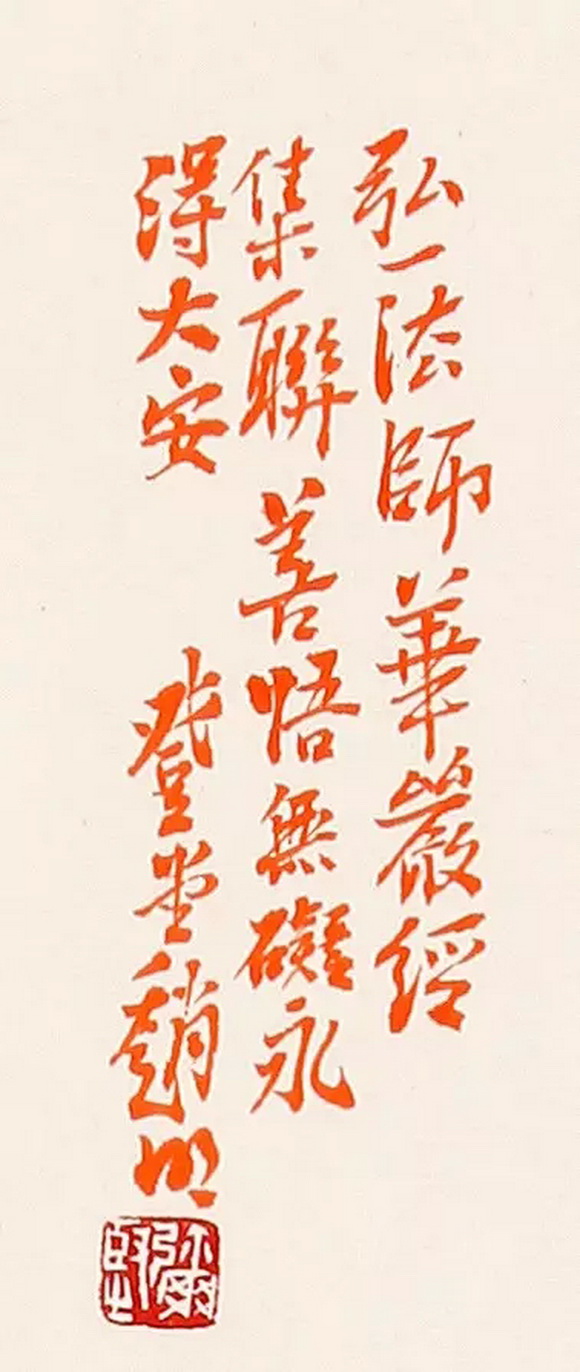 弘一法師華嚴經
集聯 善悟無礙永
得大安 登堂趙明